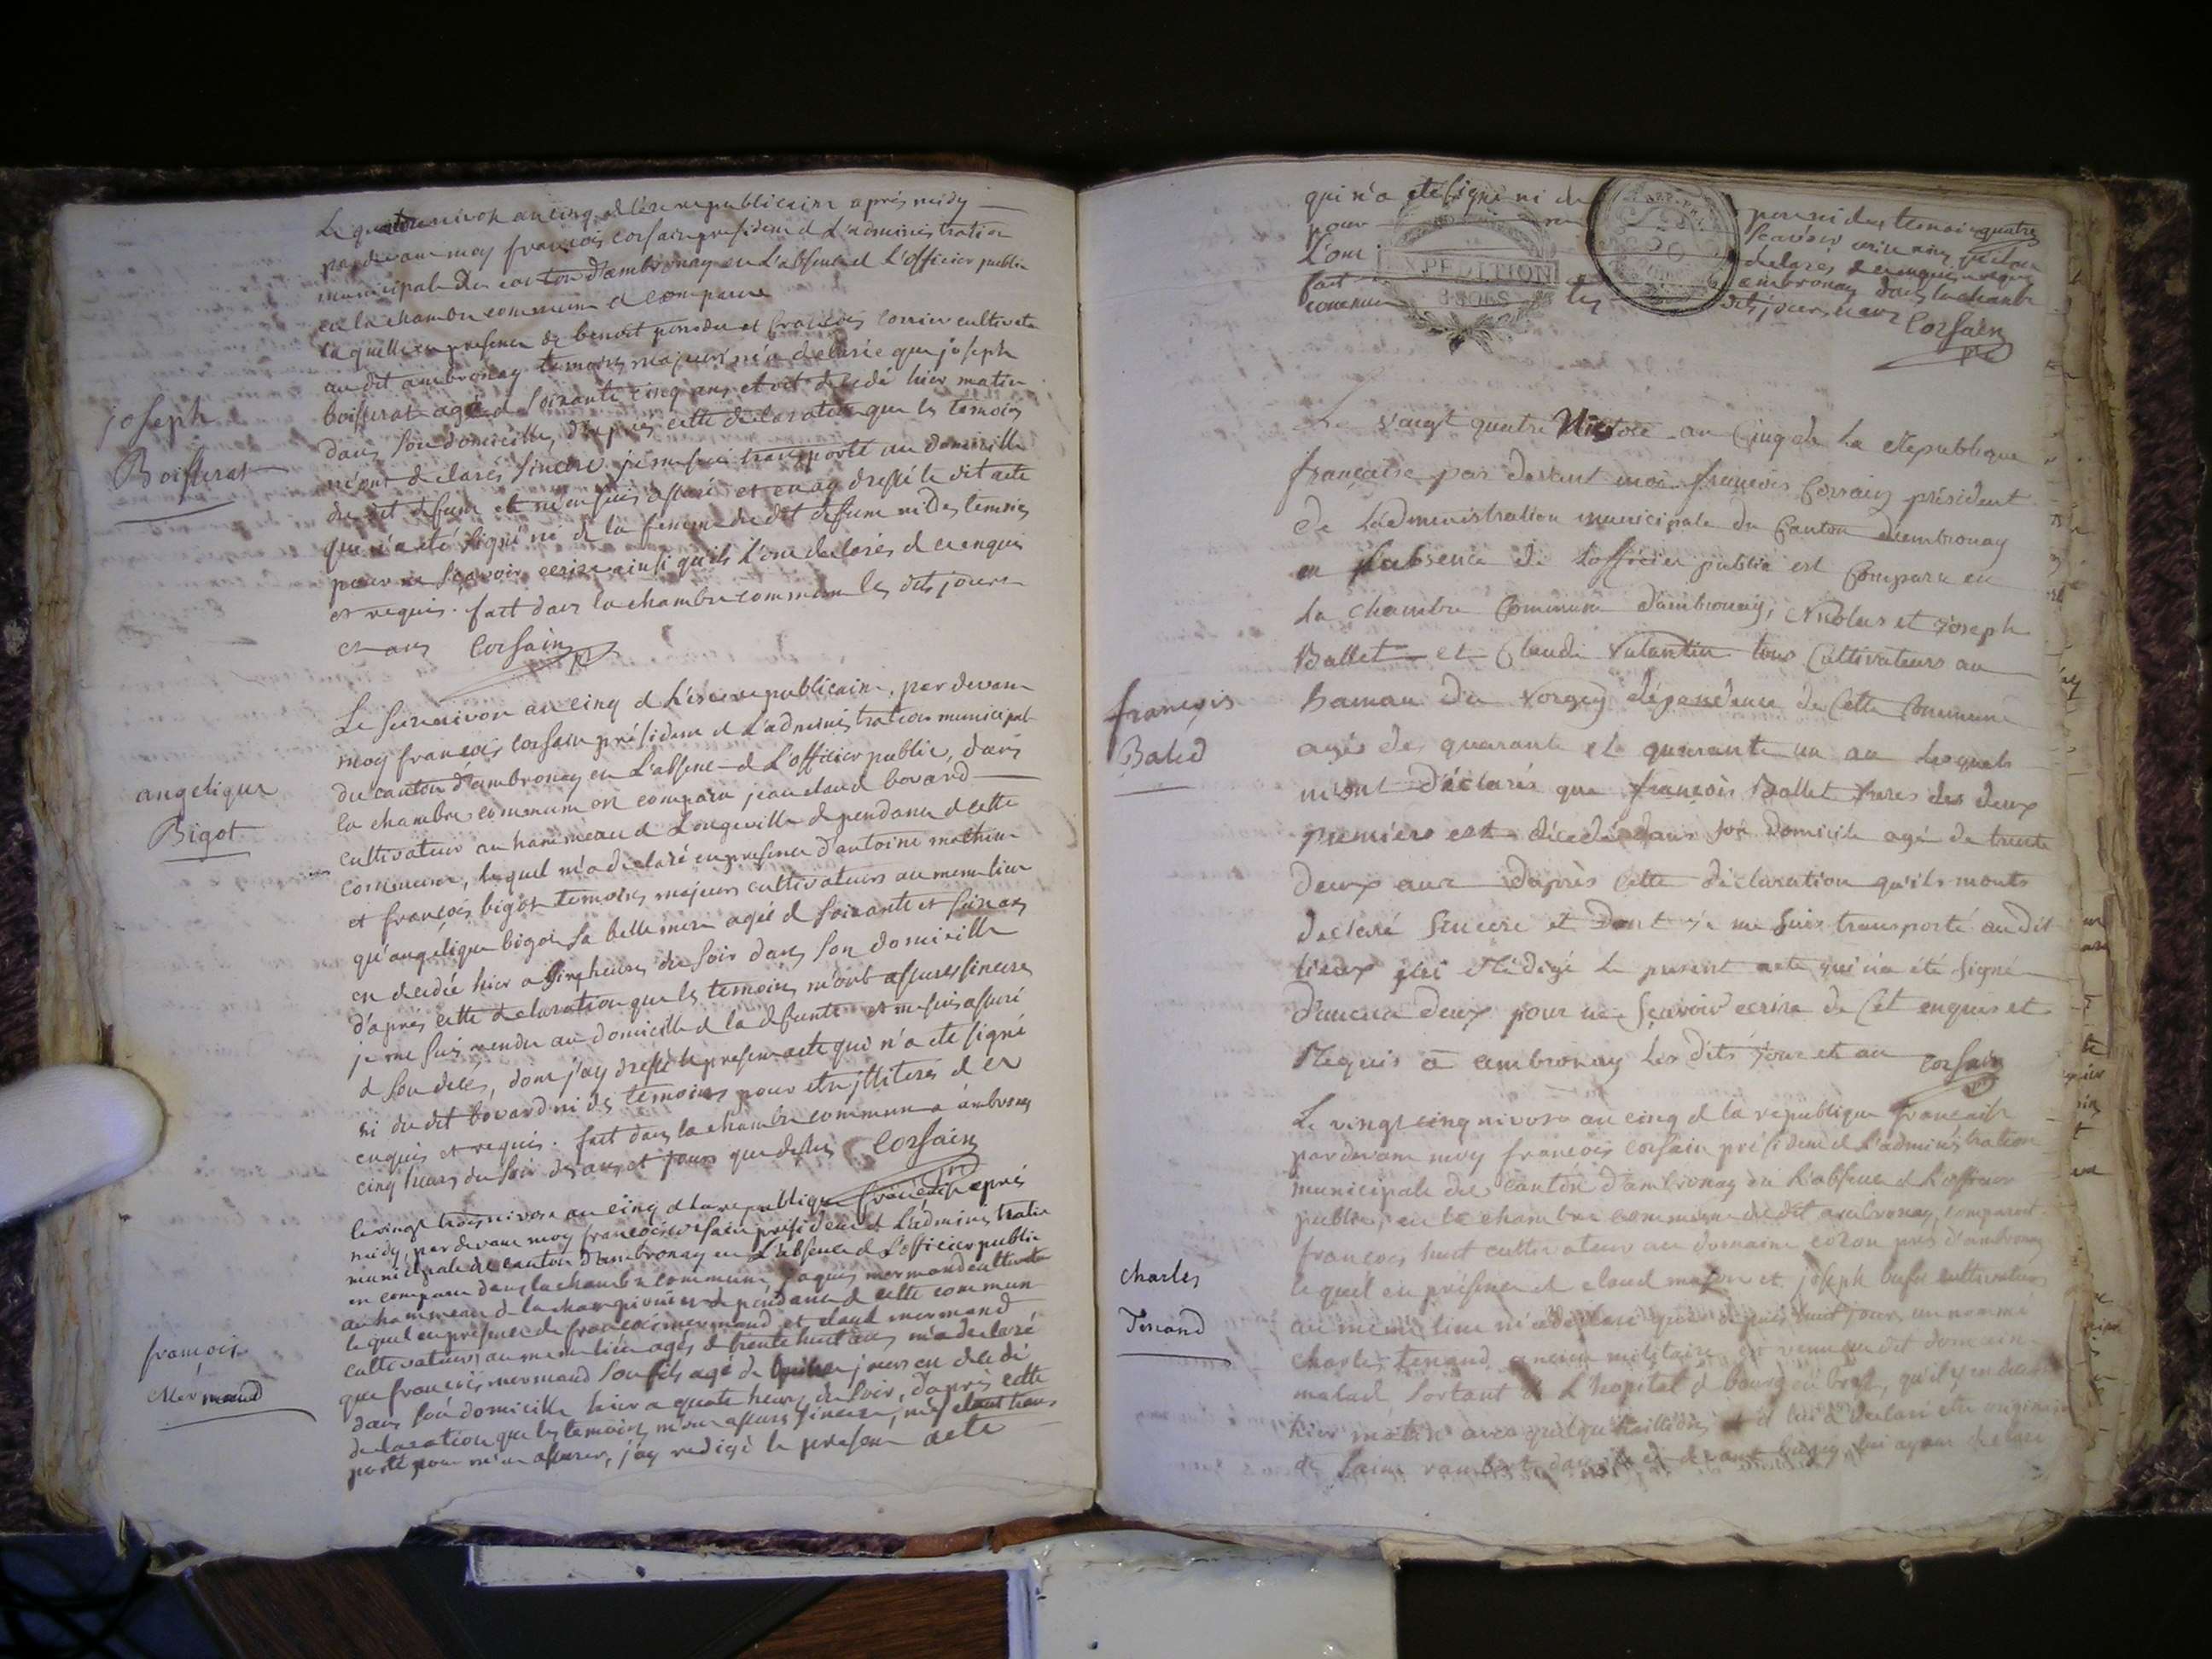 Le quatre nivose an cinq de l'ere republicaine après midy
par devant moy françois corsain president de l'administration
municipale du canton d'ambronay en l'absence de l'officier public
en la chambre commune est comparue
laquelle en presence de benoit et françois cultivate
au dit ambronay temoins majeurs m'a declarée que joseph
boisserat agé de soixante cinq ans etoit decedé hier matin
dans son domicille, d'après cette declaration que les temoins
m'ont declarés sincere je me suis transporté au domicille
du dit defunt et m'en suis assuré et en ay dressé le dit acte
qui n'a eté signé ni de la femme du dit defunt ni des temoins
pour ne sçavoir ecrire ainsi qu'ils l'ont declarés de ce enquis
et requis. fait dans la chambre commune les dits jours
et ans Corsain
joseph
Boisserat
Le six nivose an cinq de l'ère republicaine, par devant
moy françois corsain président de l'administration municipal
du canton d'ambronay en l'absence de l'officier public, dans
la chambre commune est comparu jean claud bovard
cultivateur au hammeau de Longeville dependance de cette
commune, lequel m'a declaré en presence d'antoine
et françois bigot temoins majeurs cultivateurs au meme lieu
qu'angelique bigot sa belle mere agée de soixante et six ans
est decedée hier a cinq heures du soir dans son domicille
d'après cette declaration que les temoins m'ont assurés sincere
je me suis rendu au domicille de la defunte et me suis assuré
de son decès, dont j'ay dressé le present acte qui n'a eté signé
ni du dit bovard ni des temoins pour etre illiterés de ce
enquis et requis. fait dans la chambre commune a ambronay
cinq heures du soir des ans et jours que dessus Corsain
angelique
Bigot
le vingt trois nivose an cinq de la republique française après
midy, par devant moy françois corsain president de l'administration
municipale du canton d'ambronay en l'absence de l'officier public
est comparu dans la chambre commune jaques mermand cultivateur
au hammeau de la dependance de cette commune
lequel en presence de françois mermand et claud mermand
cultivateurs au meme lieu agés de trente huit ans m'a declaré
que françois mermand son fils agé de jours est decedé
dans son domicille hier a quatre heures du soir, d'après cette
declaration que les temoins m'ont assurés sincere, m'y etant trans
porté pour m'en assurer, j'ay redigé le present acte
françois
Mermand
qui n'a eté signé ni du
pour
l'ont
fait
commune les
pere ni des temoins quatre
sçavoir ecrire
declarés de ce enquis et requis
ambronay dans la chambre
dits jours et ans
Corsain
EXPEDITION
Le vaingt quatre Nivose an Cinq de La Republique
française par devant moi françois Corsain président
de Ladministration municipale du Canton dambronay
en Labsence de Lofficier public est Comparu en
La chambre Commune dambronay, Nicolas et Joseph
Ballet et Claude Valantin tous Cultivateurs au
hamau du Vorgey dépendence de Cette Commune
agés de quarante et quarante un an lesquels
m'ont déclarés que françois Ballet freres des deux
premiers est décedé dans son domicile agé de trente
deux ans daprès Cette déclaration qu'ils monts
declaré sincere et Dont je me suis transporté au dit
lieux j'ai Rédigé le present acte qui n'a été signé
daucun deux pour ne sçavoir ecrire de Cet enquis et
Requis a ambronay les dits jour et an Corsain
françois
Balet
Le vingt cinq nivose an cinq de la republique française
par devant moy françois corsain président de l'administration
municipale du canton d'ambronay en l'absence de l'officier
public, en la chambre commune du dit ambronay, comparoit
françois huit cultivateur au domaine cozon près d'ambronay
lequel en présence de claud et joseph cultivateurs
au meme lieu m'a declaré que depuis huit jours un nommé
charles tenand ancien militaire est venu au dit domaine
malade, sortant de L'hopital de bourg en bresse, qu'il y est
hier matin avec quelque et lui a declaré etre originaire
de saint rambert ayant declaré
charles
Tenand